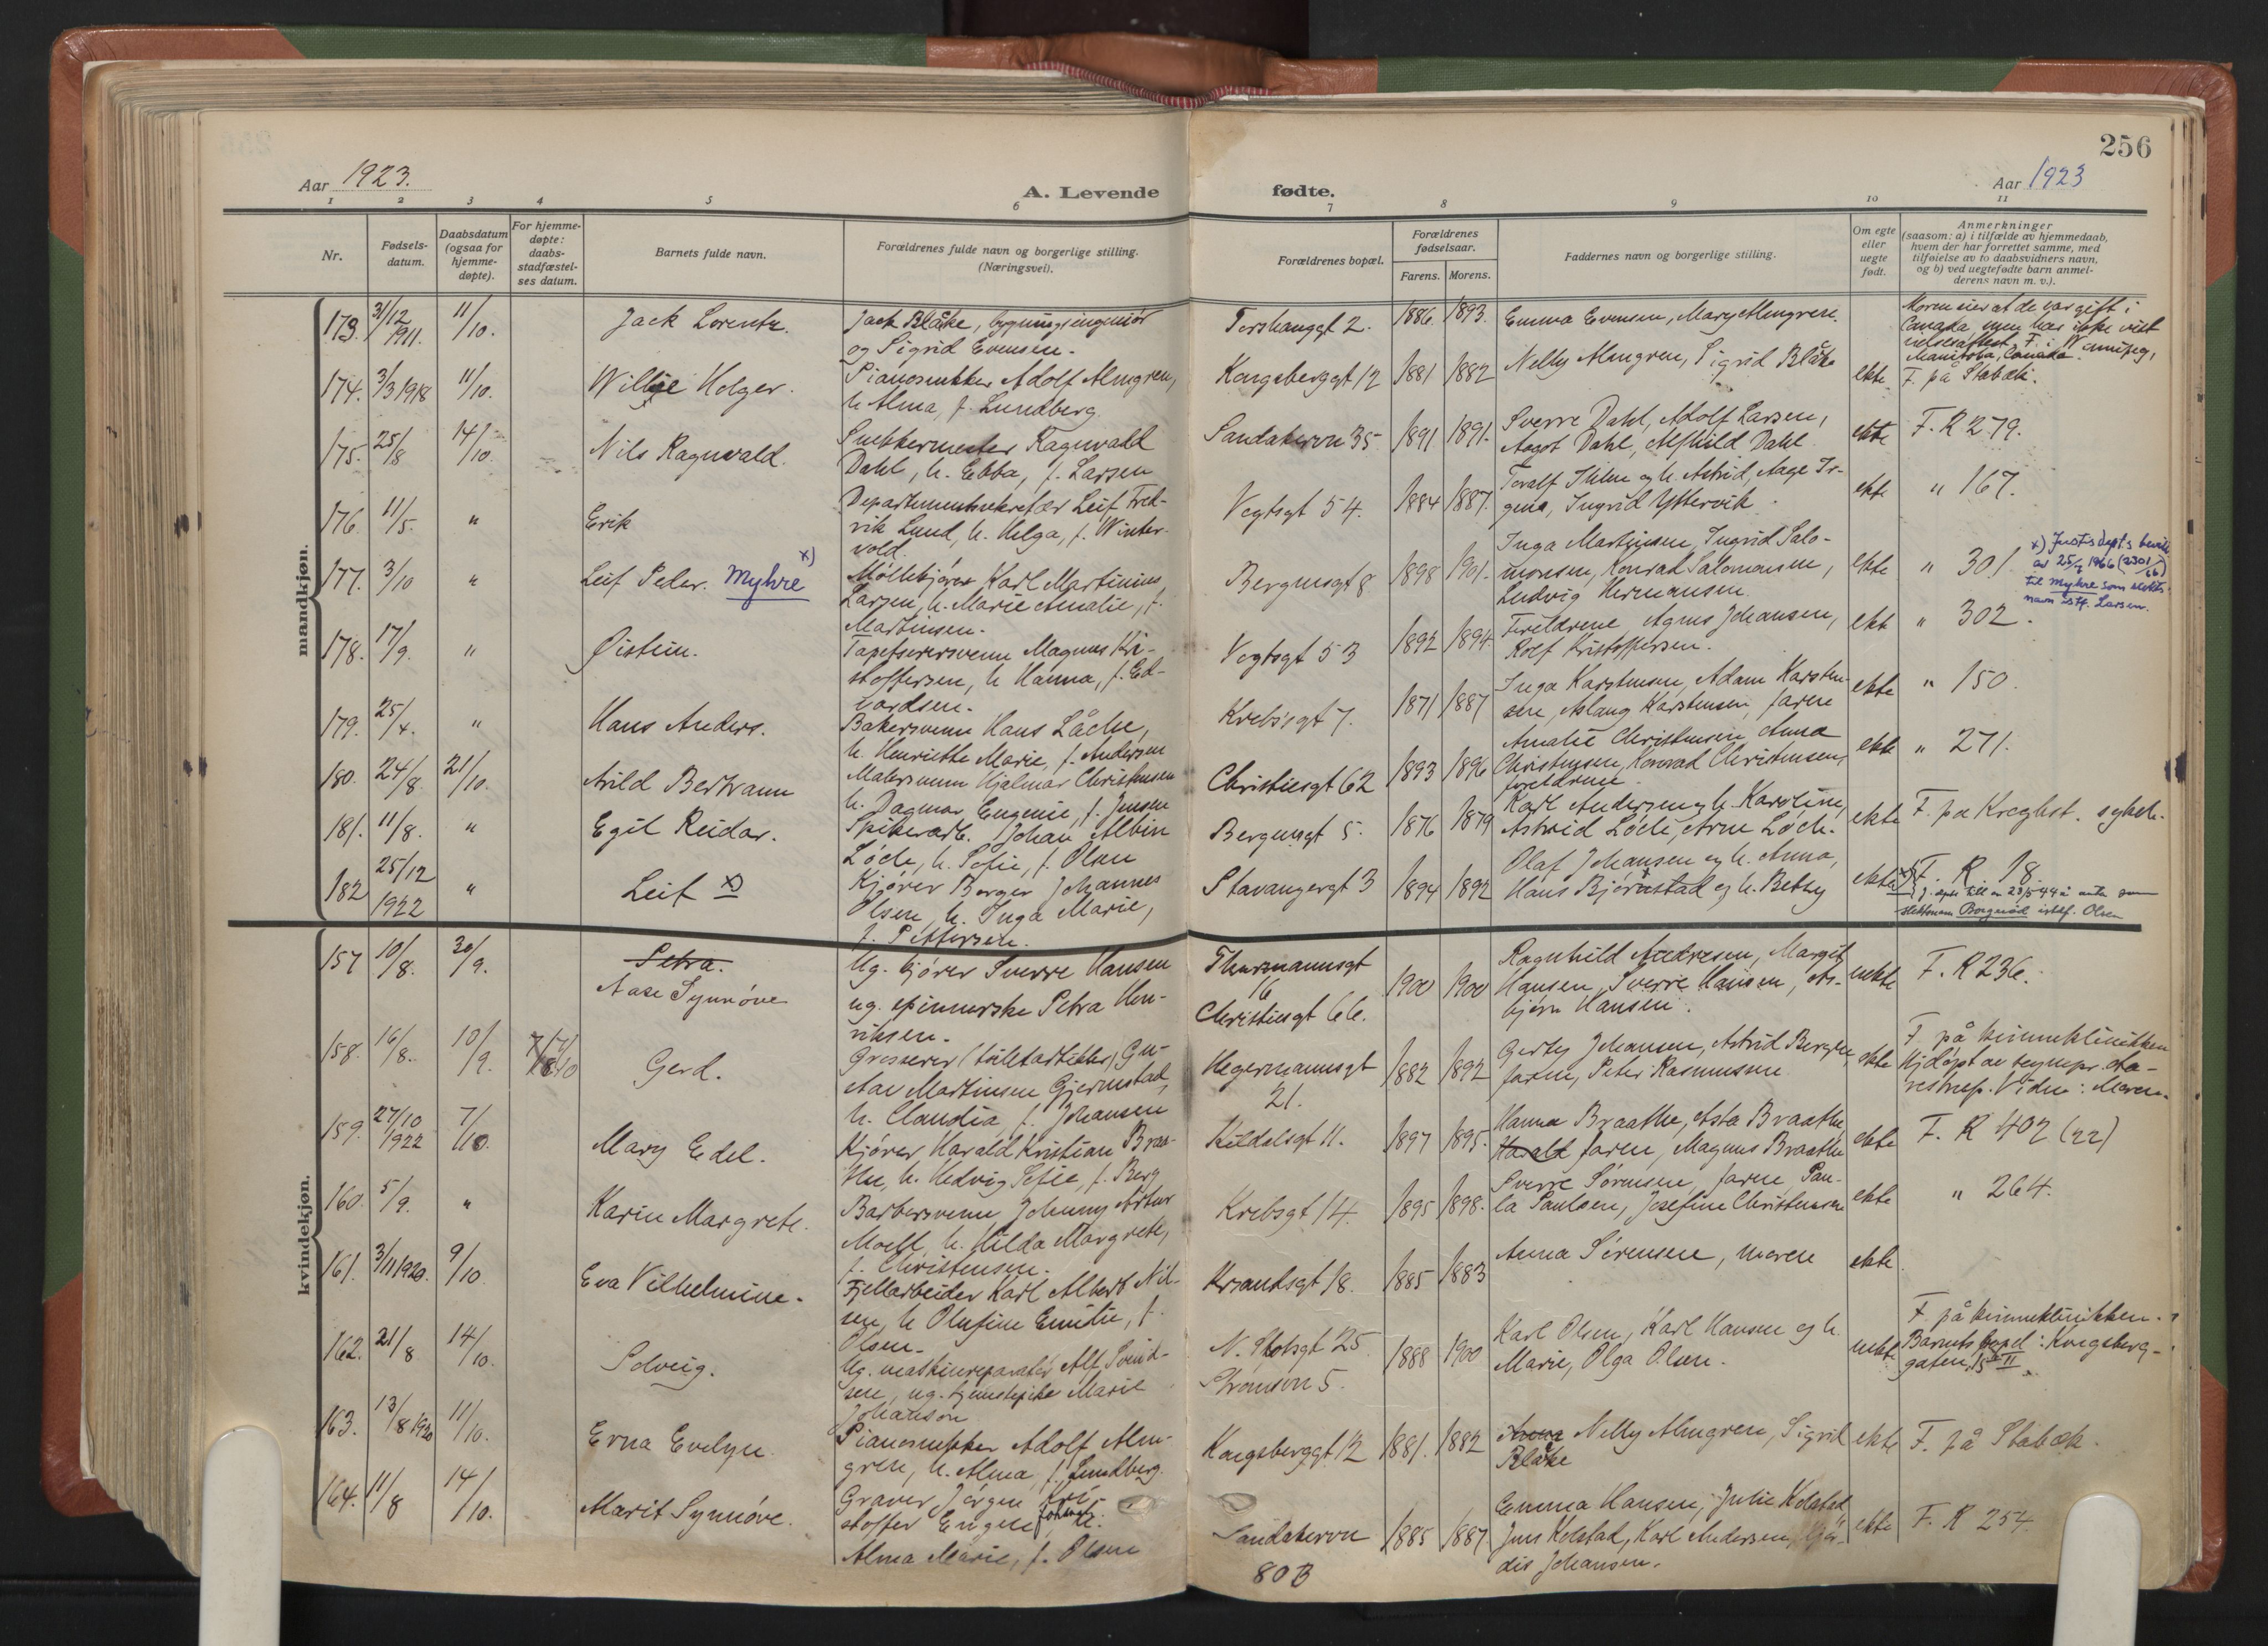 256
Aar 1923.
A. Levende fødte.
Aar 1923
1 2 3 4 5 6 7 8 9 10 11
Nr.
Fødsels-
datum.
Daabsdatum
(ogsaa for
hjemme-
døpte).
For hjemme-
døpte:
daabs-
stadfæstel-
ses datum.
Barnets fulde navn.
Forældrenes fulde navn og borgerlige stilling.
(Næringsvei).
Forældrenes bopæl.
Forældrenes
fødselsaar.
Farens. Morens.
Faddernes navn og borgerlige stilling.
Om egte
eller
uegte
født.
Anmerkninger
(saasom: a) i tilfælde av hjemmedaab,
hvem der har forrettet samme, med
tilføielse av to daabsvidners navn,
og b) ved uegtefødte barn anmel-
derens navn m. v.).
mandkjøn.
173. 31/12 1911. 11/10. Jack Lorentz.
Jack Blåke, bygningsingeniør
og Sigrid Evensen.
Torshauggt 2. 1886. 1893.
Emma Evensen, Mary Almgren.
Moren sier at de var gift i
Canada, men har ikke vist
vielsesattest. F. i Winnipeg,
Manitoba, Canada.
174. 3/3 1918 11/10. Willie Holger.
Pianosnekker Adolf Almgren,
h. Alma, f. Lundberg.
Kongsberggt 12 1881 1882
Nelly Almgren, Sigrid Blåke
ekte F. på Stabæk.
175. 25/8 14/10. Nils Ragnvald.
Snekkermester Ragnvald
Dahl, h. Ebba, f. Larsen
Sandakervn 35 1891 1891.
Sverre Dahl, Adolf Larsen,
Aagot Dahl, Alfhild Dahl.
ekte F. R 279.
176. 11/5. " Erik
Departementssekretær Leif Fred-
rik Lund, h. Helga, f. Winter-
vold.
Vogtsgt 54. 1884 1887.
Toralf Ihlen og h. Astrid, Aage Ir-
gens, Ingrid Yttervik.
ekte " 167.
177. 3/10 " Leif Peder. Myhre x)
Møllekjører Karl Martinius
Larsen, h. Marie Amalie, f.
Martinsen.
Bergensgt 8 1898 1901.
Inga Martinsen, Ingrid Salo-
monsen, Konrad Salomonsen,
Ludvig Hermansen.
ekte " 301.
x) Justisdepts bevill.
av 25/7 1966 (2301/66)
til Myhre som slekts-
navn istf. Larsen.
178. 17/9. " Øistein.
Tapetserersvenn Magnus Kri-
stoffersen, h. Hanna, f. Ed-
vardsen.
Vogtsgt 53 1892 1894.
Foreldrene, Agnes Johansen,
Rolf Kristoffersen.
ekte " 302.
179. 25/4. " Hans Anders.
Bakersvenn Hans Låche,
h. Henriette Marie, f. Andersen
Krebsgt 7. 1871 1887
Inga Karstensen, Adam Karsten-
sen, Aslaug Karstensen, faren
ekte " 150.
180. 24/8. 21/10. Arild Bertrann
Malersvenn Hjalmar Christensen
h. Dagmar Eugenie, f. Jensen
Christiesgt 62 1893 1896
Amalie Christensen, Anna
Christensen, Konrad Christensen,
foreldrene.
ekte " 271.
181. 11/8. " Egil Reidar.
Spikerarb. Johan Albin
Löch, h. Sofie, f. Olsen
Bergensgt 5. 1876 1879
Karl Andersen og h. Karoline,
Astrid Löch, Arne Löch.
ekte
182 25/12 1922 " Leif x)
Kjører Borger Johannes
Olsen, h. Inga Marie,
f. Pettersen.
Stavangergt 3 1894 1892
Olaf Johansen og h. Anna,
Hans Bjørnstad og h. Betsy
ekte F. R. 18.
slektsnavn Borgerød istf. Olsen
kvindekjøn.
157 10/8. 30/9. Petra.
Aase Synnöve
Ug. kjører Sverre Hansen
ug. spinnerske Petra Hen-
riksen.
Thurmannsgt
16
Christiesgt 66. 1900 1900
Ragnhild Andresen, Margit
Hansen, Sverre Hansen, As-
bjørn Hansen.
uekte F. R 236.
158. 16/8. 10/9. 7/10 Gerd.
Grosserer (toilettartikler) Gu-
stav Martinsen Gjermstad,
h. Claudia f. Johansen
Hegermannsgt
21. 1882 1892
Gerty Johansen, Astrid Berger,
faren, Peter Rasmussen.
ekte F. på kvinneklinikken
Hjdøpt av sognepr. Aa-
restrup. Vidne: Moren.
159. 27/10 1922 7/10. Mary Edel.
Kjører Harald Kristian Braa-
the, h. Hedvig Sofie, f. Berg
Kildalsgt 11. 1897 1895.
Hanna Braathe, Asta Braathe
Harald faren, Magnus Braathe
ekte F. R 402 (22)
160. 5/9. " Karin Margrete.
Barbersvenn Johnny Artur
Moell, h. Hilda Margrete,
f. Christensen.
Krebsgt 14. 1895 1898.
Sverre Sørensen, faren Pau-
la Paulsen, Josefine Christensen
ekte " 264.
161. 3/11 1920. 9/10. Eva Vilhelmine.
Fjellarbeider Karl Albert Nil-
sen, h Olufine Emilie, f.
Olsen.
Krsandsgt 18. 1885 1883
Anna Sörensen, moren ekte.
162. 21/8 14/10. Solveig.
Ug. maskinreparatør Alf Svend-
sen, ug. tjenestepike Marie
Johanson
N. Slotsgt 25
Stromsvn 5. 1888 1900
Karl Olsen, Karl Hansen og h.
Marie, Olga Olsen.
uekte F. på kvinneklinikken.
Barnets bopel: Kongsberg-
gaten 15 II
163. 13/8 1920 11/10. Erna Evelyn.
Pianosnekker Adolf Alm-
gren, h. Alma, f. Lundberg.
Kongsberggt 12 1881. 1882
Anna Nelly Almgren, Sigrid
Blåke
ekte F. på Stabæk.
164. 11/8 14/10. Marit Synnöve.
Graver Jörgen Kri-
stoffer Engen, h.
Alma Marie, f. Olsen
Sandakervn
80 B 1885 1887.
Emma Hansen, Julie Kolstad,
Jens Kolstad, Karl Andersen, Hjør-
dis Johansen.
ekte F. R 254.